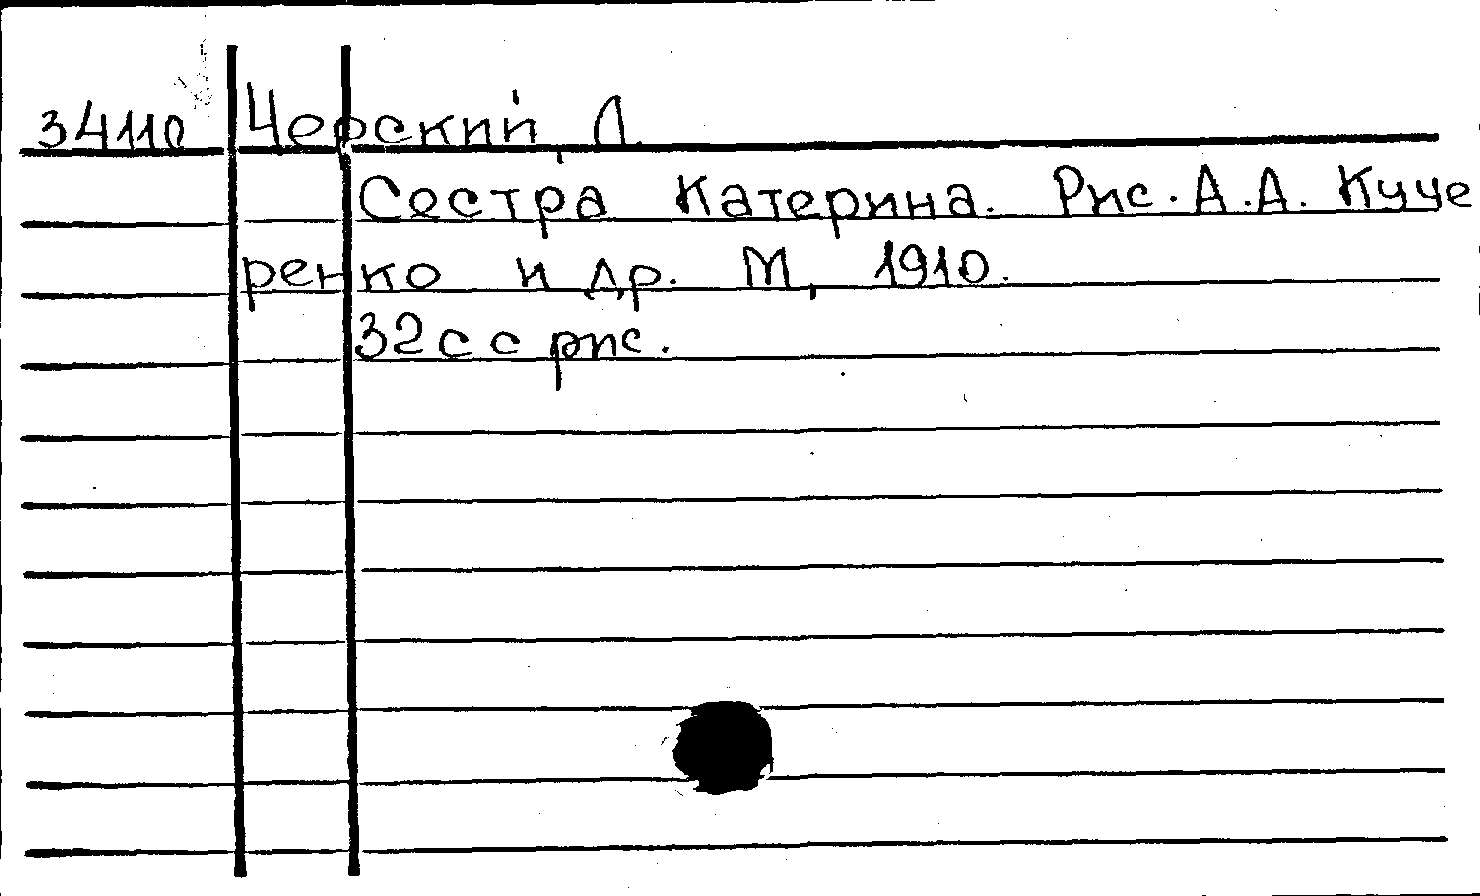 34110 Черский, Л.
Сестра Катерина. Рис. А.А. Куче
ренко и др. М, 1910.
32с с рис.